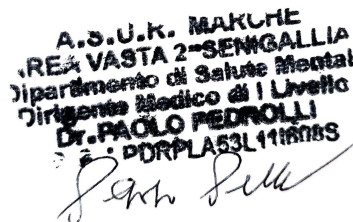 A.S.U.R. MARCHE
AREA VASTA 2-SENIGALLIA
Dipartimento di Salute Mental
Dirigente Medico di I Livello
Dr. PAOLO PEDROLLI